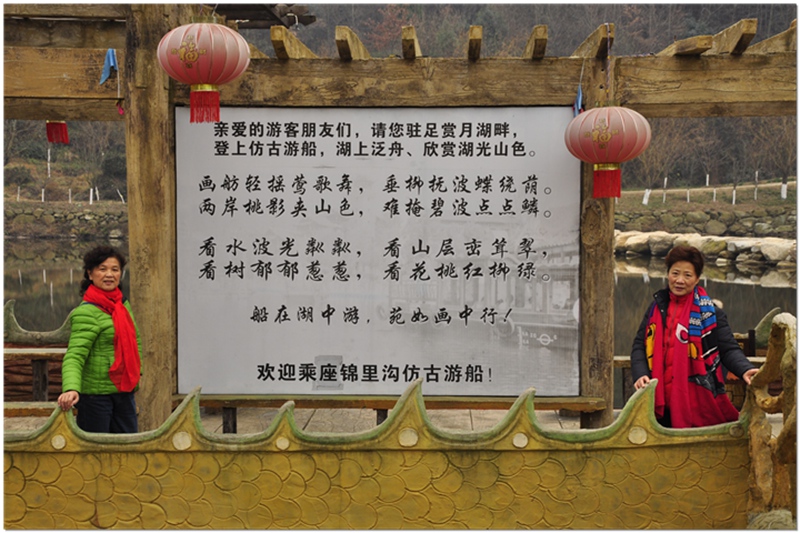 亲爱的游客朋友们，请您驻足赏月湖畔，
登上仿古游船，湖上泛舟、欣赏湖光山色。
画舫轻摇莺歌舞，垂柳抚波蝶绕荫。
两岸桃影夹山色，难掩碧波点点鳞。
看水波光粼粼，看山层峦耸翠，
看树郁郁葱葱，看花桃红柳绿。
船在湖中游，宛如画中行！
欢迎乘座锦里沟仿古游船！